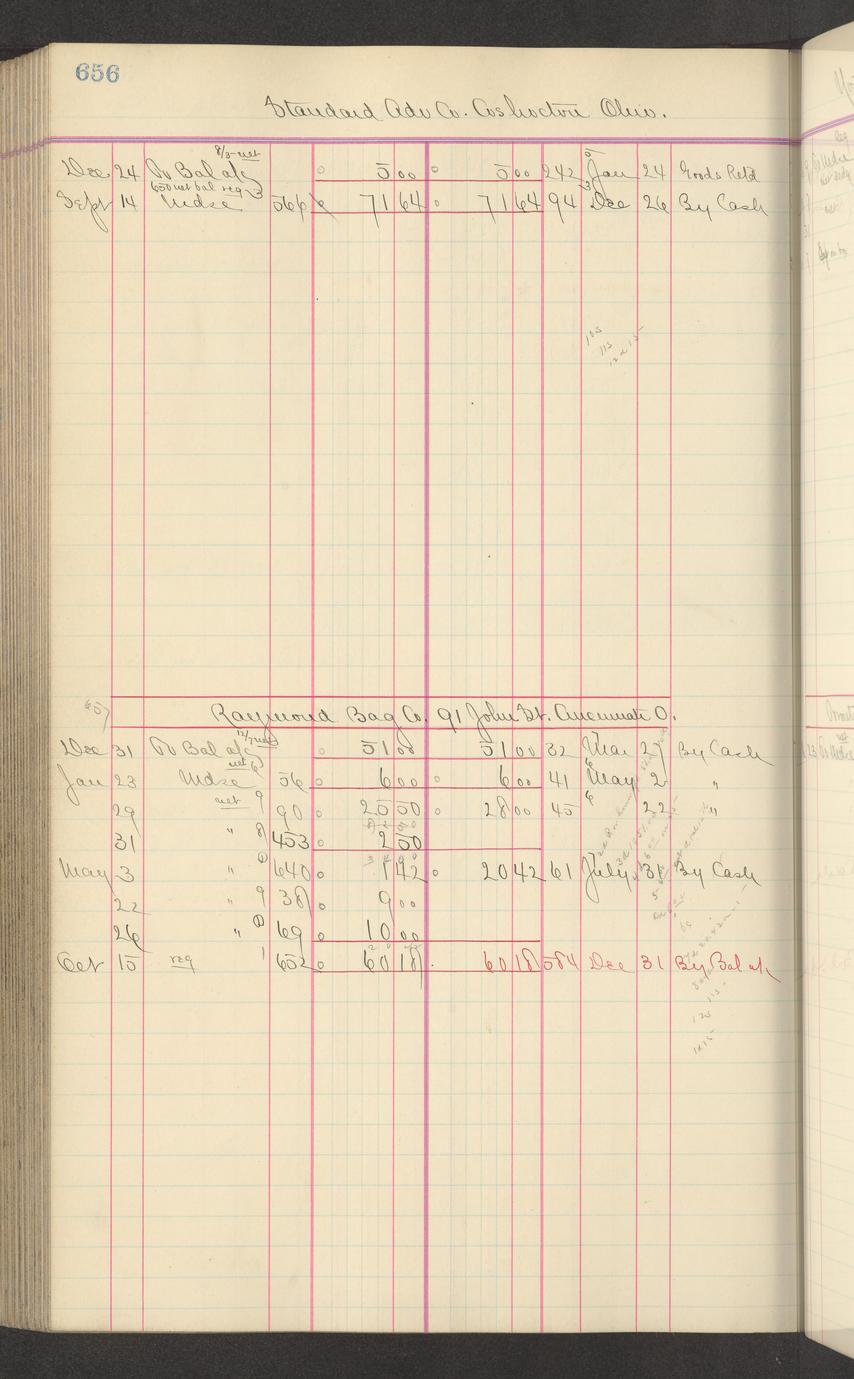 656
Standard Adv Co. Coshocton Ohio.
8/3 net
Dec 24 To Bal a/c 5 00 5 00 242 Jan 24 Goods Retd
650 net bal reg 3
Sept 14 Mdse 566 71 64 71 64 94 Dec 26 By Cash
105
115
Raymond Bag Co. 91 John St. Cincinnati O.
Dec 31 To Bal a/c 51 00 51 00 32 Mar 27 By Cash
Jan 23 Mdse net 6 56 6 00 6 00 41 May 2 "
29 net 9 90 25 50 28 00 45 22 "
31 " 8 453 2 50
May 3 " 640 1 42 20 42 61 July 31 By Cash
22 " 9 38 9 00
26 " 69 10 00
Oct 15 reg 1 652 60 18 60 18 584 Dec 31 By Bal a/c
115
125